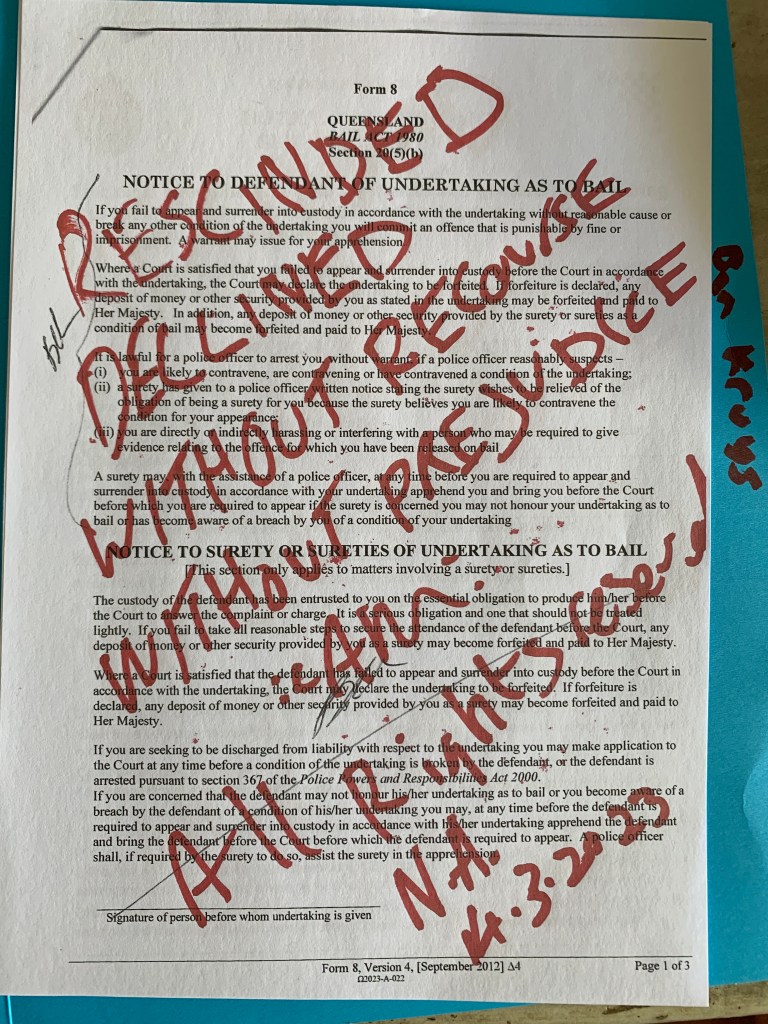 Form 8
QUEENSLAND
BAIL ACT 1980
Section 20(5)(b)
NOTICE TO DEFENDANT OF UNDERTAKING AS TO BAIL
If you fail to appear and surrender into custody in accordance with the undertaking without reasonable cause or
break any other condition of the undertaking you will commit an offence that is punishable by fine or
imprisonment. A warrant may issue for your apprehension.
Where a Court is satisfied that you failed to appear and surrender into custody before the Court in accordance
with the undertaking, the Court may declare the undertaking to be forfeited. If forfeiture is declared, any
deposit of money or other security provided by you as stated in the undertaking may be forfeited and paid to
Her Majesty. In addition, any deposit of money or other security provided by the surety or sureties as a
condition of bail may become forfeited and paid to Her Majesty.
It is lawful for a police officer to arrest you, without warrant, if a police officer reasonably suspects –
(i) you are likely to contravene, are contravening or have contravened a condition of the undertaking;
(ii) a surety has given to a police officer written notice stating the surety wishes to be relieved of the
obligation of being a surety for you because the surety believes you are likely to contravene the
condition for your appearance;
(iii) you are directly or indirectly harassing or interfering with a person who may be required to give
evidence relating to the offence for which you have been released on bail
A surety may, with the assistance of a police officer, at any time before you are required to appear and
surrender into custody in accordance with your undertaking apprehend you and bring you before the Court
before which you are required to appear if the surety is concerned you may not honour your undertaking as to
bail or has become aware of a breach by you of a condition of your undertaking
NOTICE TO SURETY OR SURETIES OF UNDERTAKING AS TO BAIL
[This section only applies to matters involving a surety or sureties.]
The custody of the defendant has been entrusted to you on the essential obligation to produce him/her before
the Court to answer the complaint or charge. It is a serious obligation and one that should not be treated
lightly. If you fail to take all reasonable steps to secure the attendance of the defendant before the Court, any
deposit of money or other security provided by you as a surety may become forfeited and paid to Her Majesty.
Where a Court is satisfied that the defendant has failed to appear and surrender into custody before the Court in
accordance with the undertaking, the Court may declare the undertaking to be forfeited. If forfeiture is
declared, any deposit of money or other security provided by you as a surety may become forfeited and paid to
Her Majesty.
If you are seeking to be discharged from liability with respect to the undertaking you may make application to
the Court at any time before a condition of the undertaking is broken by the defendant, or the defendant is
arrested pursuant to section 367 of the Police Powers and Responsibilities Act 2000.
If you are concerned that the defendant may not honour his/her undertaking as to bail or you become aware of a
breach by the defendant of a condition of his/her undertaking you may, at any time before the defendant is
required to appear and surrender into custody in accordance with his/her undertaking apprehend the defendant
and bring the defendant before the Court before which the defendant is required to appear. A police officer
shall, if required by the surety to do so, assist the surety in the apprehension.
Signature of person before whom undertaking is given
Form 8, Version 4, [September 2012] Δ4
Ω2023-A-022
Page 1 of 3
RESCINDED
DECLINED
WITHOUT RECOURSE
WITHOUT PREJUDIZE
All Rights reserved
N.A.
Ben Kruys